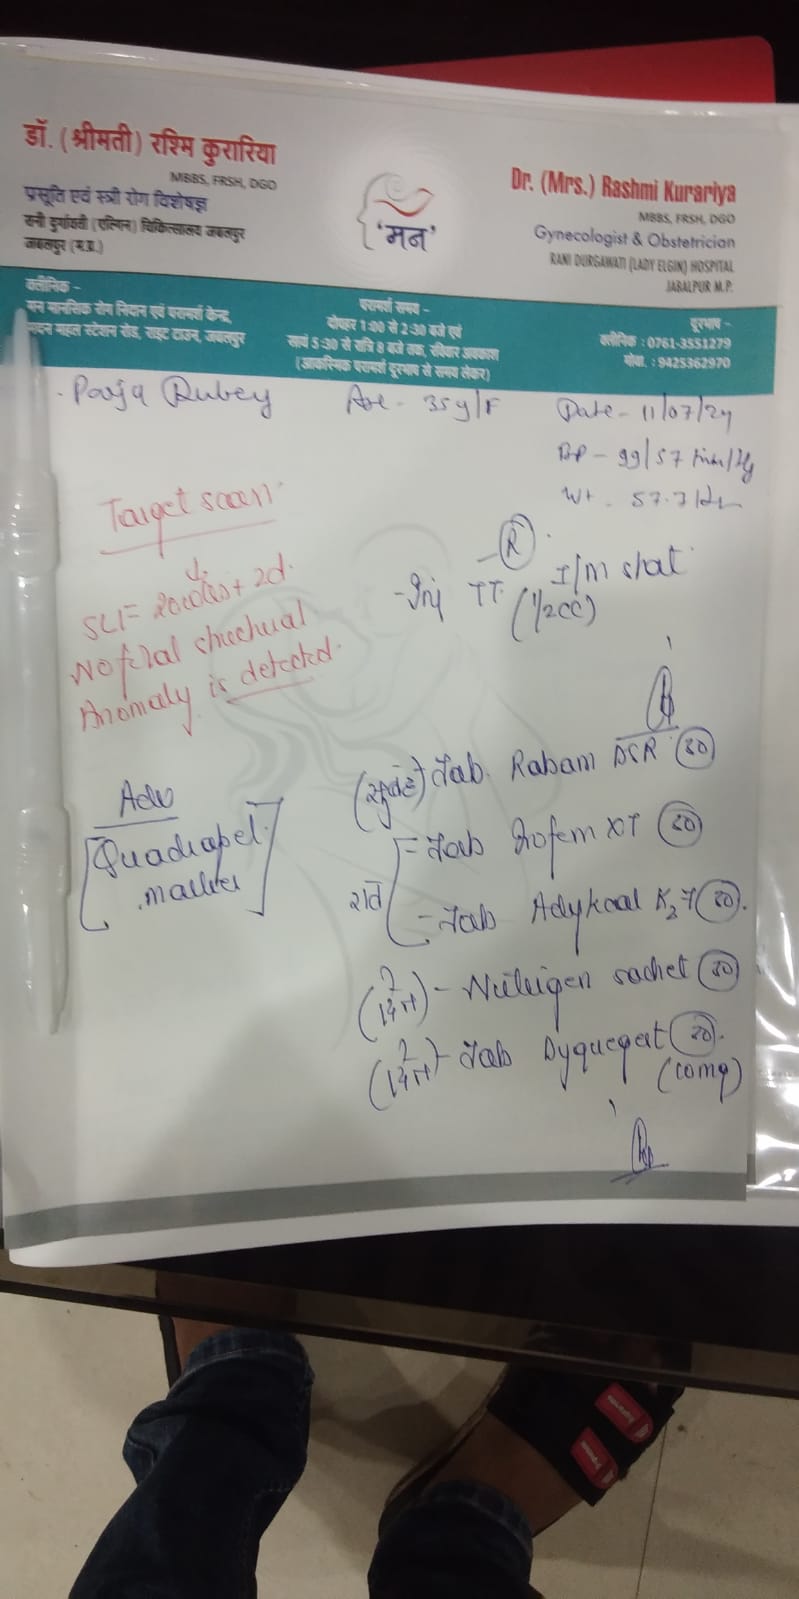 डॉ. (श्रीमती) रश्मि कुरारिया
MBBS, FRSH, DGO
प्रसूति एवं स्त्री रोग विशेषज्ञ
रानी दुर्गावती (एल्गिन) चिकित्सालय जबलपुर
जबलपुर (म.प्र.)
'मन'
Dr. (Mrs.) Rashmi Kurariya
MBBS, FRSH, DGO
Gynecologist & Obstetrician
RANI DURGAWATI (LADY ELGIN) HOSPITAL
JABALPUR M.P.
क्लीनिक -
मन मानसिक रोग निदान एवं परामर्श केन्द्र,
मदन महल स्टेशन रोड, राइट टाउन, जबलपुर
परामर्श समय -
दोपहर 1:00 से 2:30 बजे एवं
सायं 5:30 से रात्रि 8 बजे तक, रविवार अवकाश
(आकस्मिक परामर्श दूरभाष से समय लेकर)
दूरभाष -
क्लीनिक : 0761-3551279
मोबा. : 9425362970
Pooja Dubey Age - 35y/F Date - 11/07/24
BP - 99/57 mm/Hg
Wt - 57.7
Target scan
SLI = 20 + 2d.
No fetal structural
Anomaly is detected.
R
- Inj TT. I/m stat
(1/2cc)
Adv
[Quadrapel
marker]
(सुबह) Tab. Rabam DSR (30)
रात [- Tab XT (30)
- Tab K2 7 (30).
- sachet (30)
- Tab (30).
(10mg)